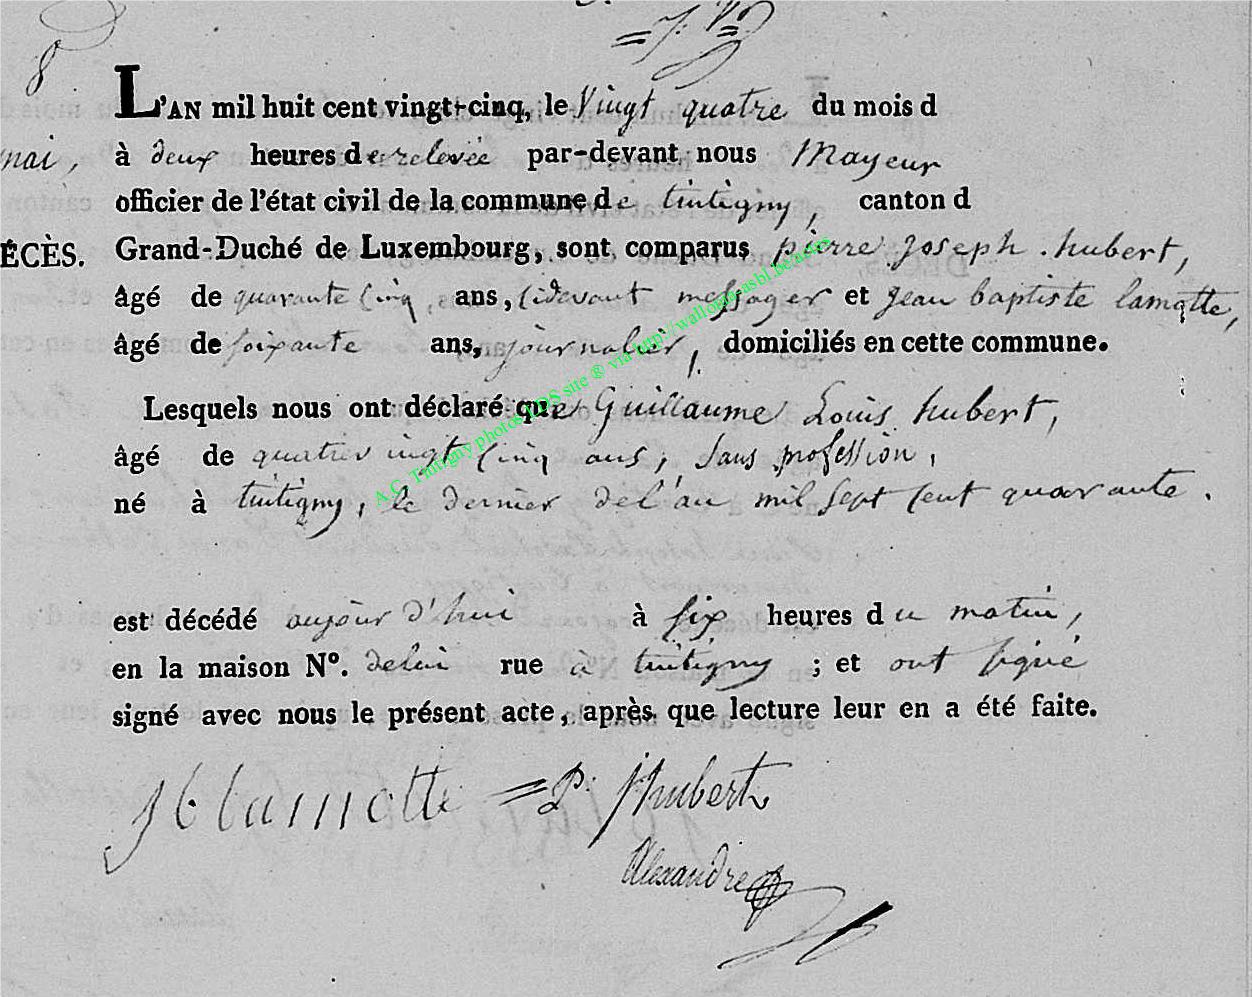 8
L'AN mil huit cent vingt-cinq, le Vingt quatre du mois d
mai, à deux heures de relevée par-devant nous Mayeur
officier de l'état civil de la commune de tintigny, canton d
ÉCÈS. Grand-Duché de Luxembourg, sont comparus pierre joseph hubert,
âgé de quarante cinq ans, cidevant messager et jean baptiste lamotte,
âgé de soixante ans, journalier, domiciliés en cette commune.
Lesquels nous ont déclaré que Guillaume Louis hubert,
âgé de quatre vingt cinq ans, sans profession,
né à tintigny, le dernier de l'an mil sept cent quarante.
est décédé aujour d'hui à six heures du matin,
en la maison N°. delui rue à tintigny ; et ont signé
signé avec nous le présent acte, après que lecture leur en a été faite.
J b lamotte = P. j hubert
Alexandre
A.C. Tintigny photos LDS site ® via http://wallonia-asbl.be/actes